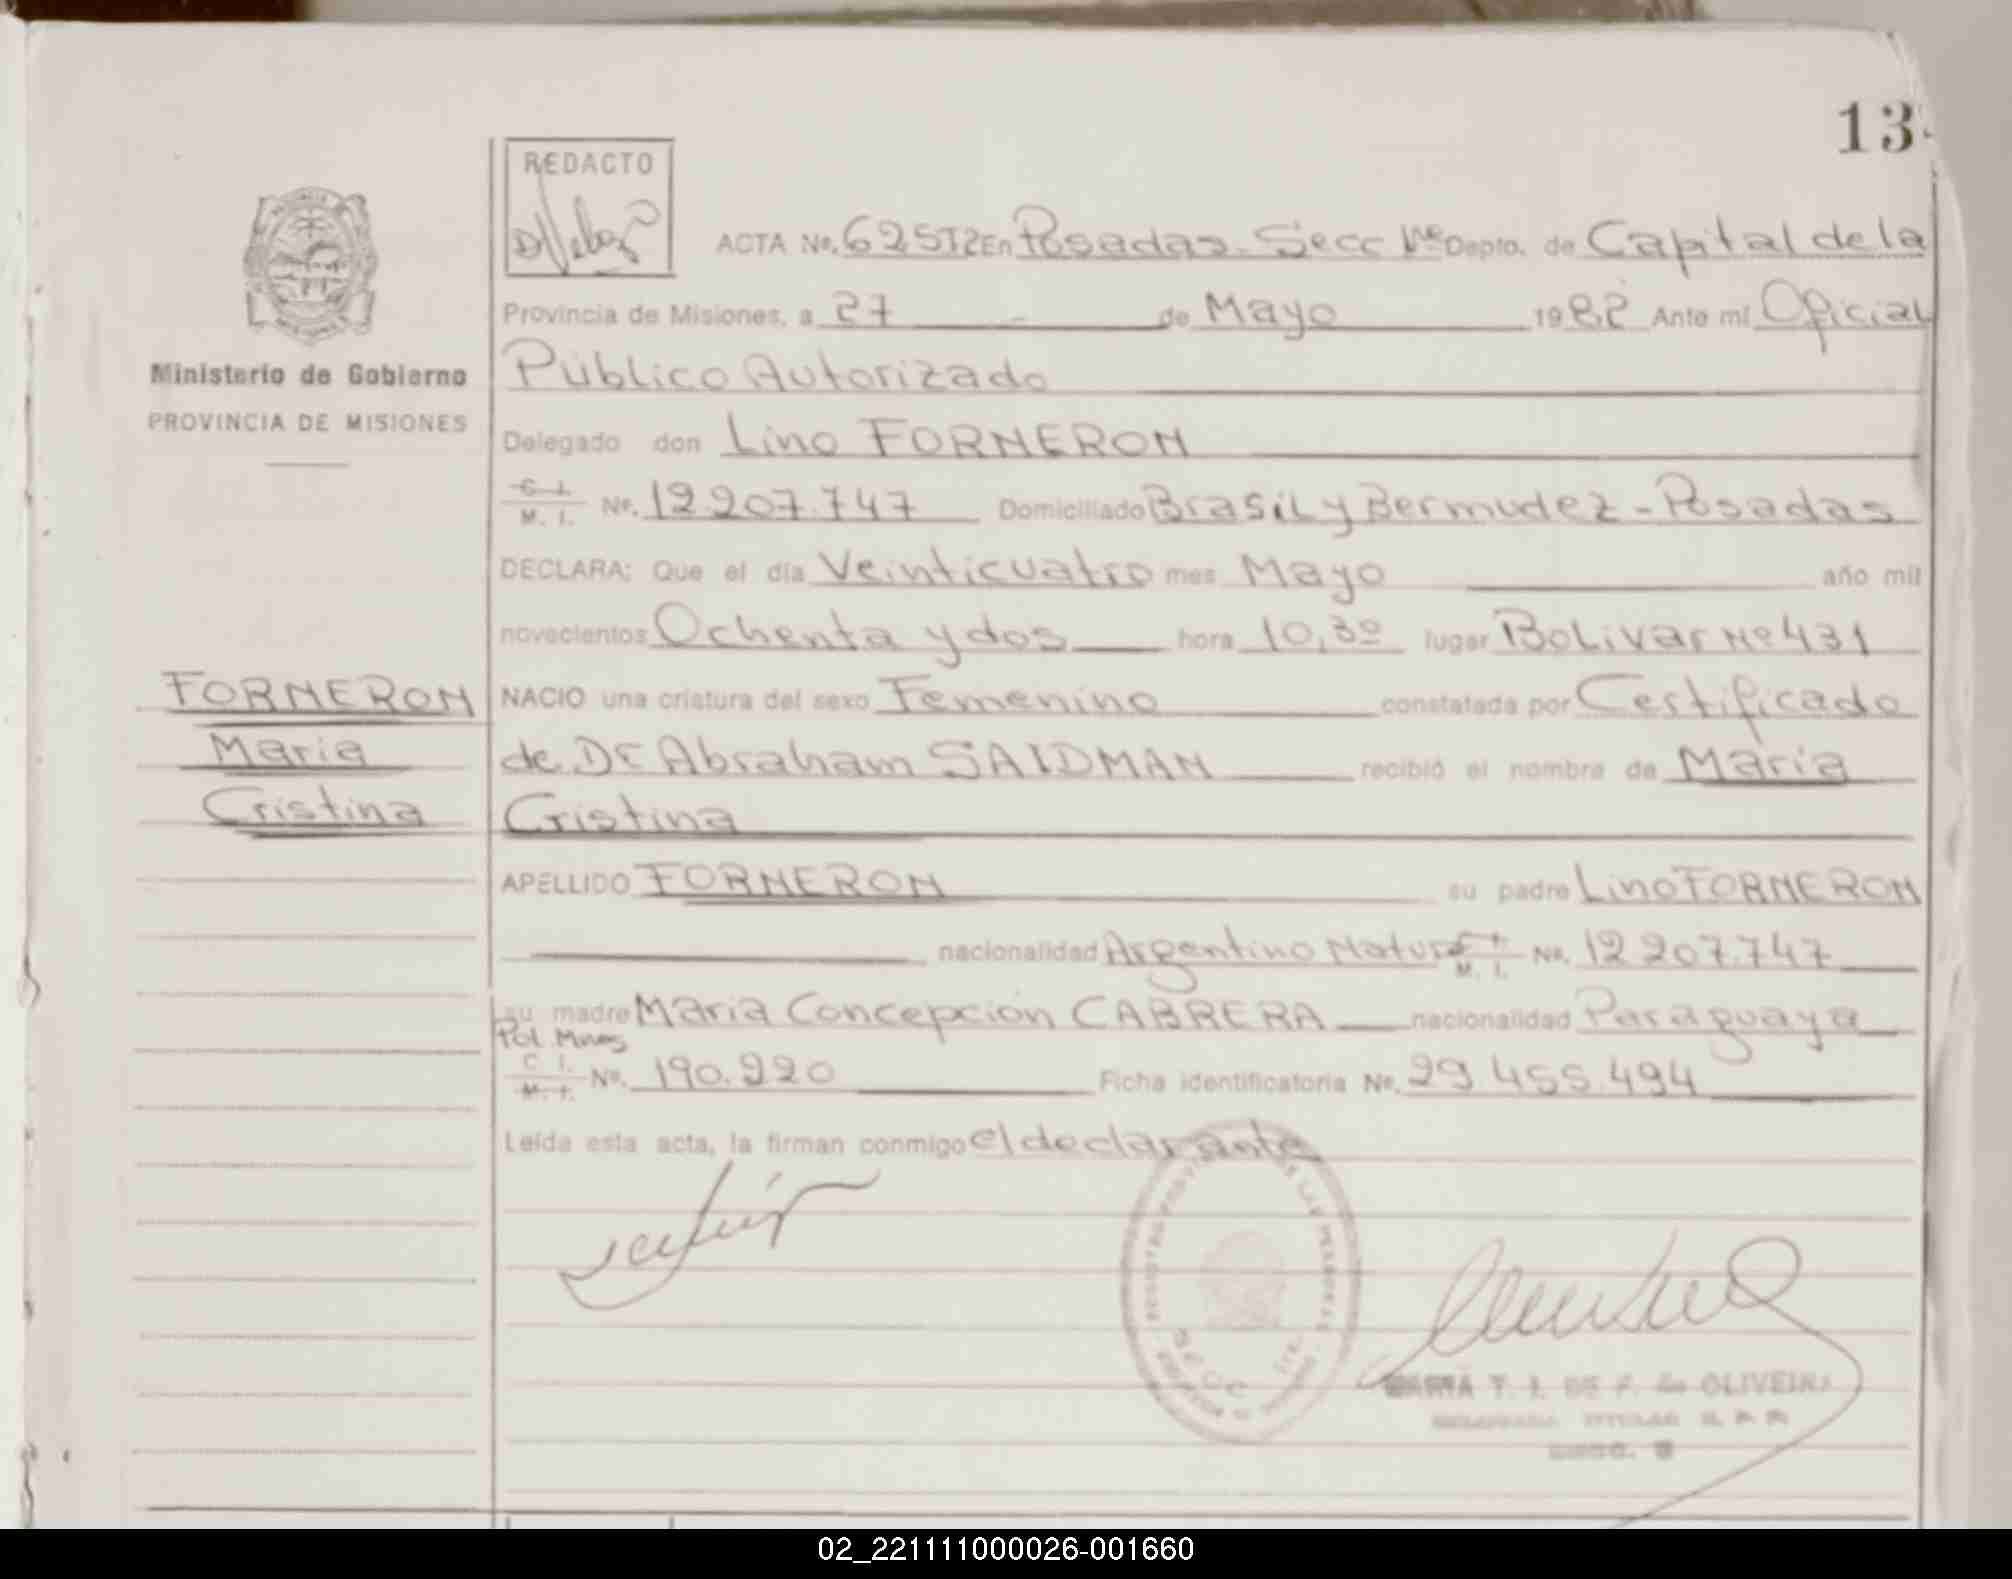 13
REDACTO
ACTA No. 625T2 En Posadas - Secc 1re Depto. de Capital de la
Provincia de Misiones, a 27 de Mayo 1982 Ante mí Oficial
Ministerio de Gobierno
Público Autorizado
PROVINCIA DE MISIONES
Delegado don Lino FORNERON
C. I.
M. I. No. 12.207.747 Domiciliado Brasil y Bermudez - Posadas
DECLARA: Que el día Veinticuatro mes Mayo año mil
novecientos Ochenta y dos hora 10,30 lugar Bolivar No 431
FORNERON
NACIO una criatura del sexo Femenino constatada por Certificado
Maria
de Dr Abraham SAIDMAN recibió el nombre de Maria
Cristina
Cristina
APELLIDO FORNERON su padre Lino FORNERON
nacionalidad Argentino Natural C. I.
M. I. No. 12 207.747
su madre Maria Concepción CABRERA nacionalidad Paraguaya
Pol. Mnes
C. I.
M. I. No. 190.220 Ficha identificatoria No. 29 455.494
Leída esta acta, la firman conmigo el declarante
MARIA T. I. DE F. de OLIVEIRA
SECC.
02_221111000026-001660